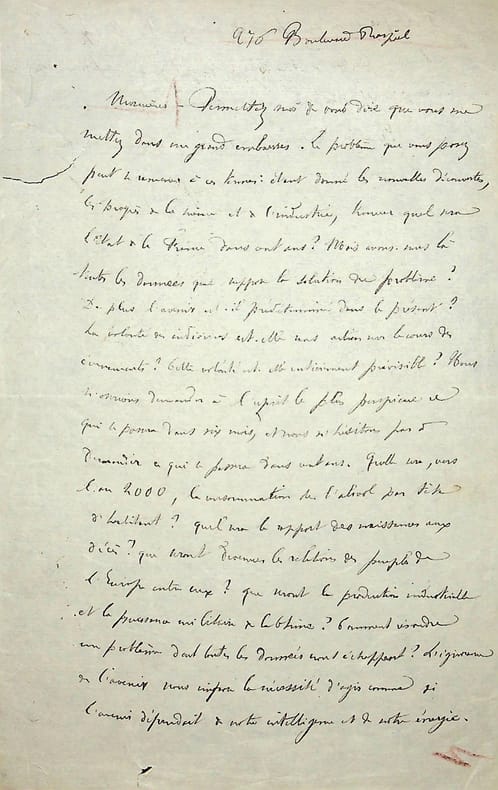 276 Boulevard Raspail
Monsieur - Permettez moi de vous dire que vous me
mettez dans un grand embarras. Le problème que vous posez
peut se ramener à ces termes : étant donné les nouvelles découvertes,
les progrès de la science et de l'industrie, trouver quel sera
l'état de la France dans cent ans ? Mais avons-nous là
toutes les données que suppose la solution du problème ?
De plus l'avenir est-il prédéterminé dans le présent ?
La volonté des individus est-elle sans action sur le cours des
événements ? Cette volonté est-elle entièrement prévisible ? Nous
n'osons demander à l'esprit le plus perspicace ce
qui se passera dans six mois, et nous n'hésitons pas à
demander ce qui se passera dans cent ans. Quelle sera, vers
l'an 2000, la consommation de l'alcool par tête
d'habitant ? quel sera le rapport des naissances aux
décès ? que seront devenues les relations des peuples de
l'Europe entre eux ? que seront la production industrielle
et la puissance militaire de la Chine ? Comment résoudre
un problème dont toutes les données nous échappent ? L'ignorance
de l'avenir nous impose la nécessité d'agir comme si
l'avenir dépendait de notre intelligence et de notre énergie.